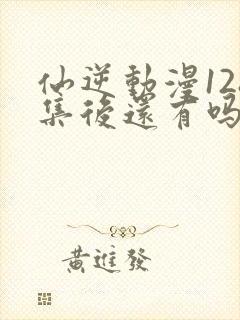 仙逆動漫12
集後還有吗
黄進發